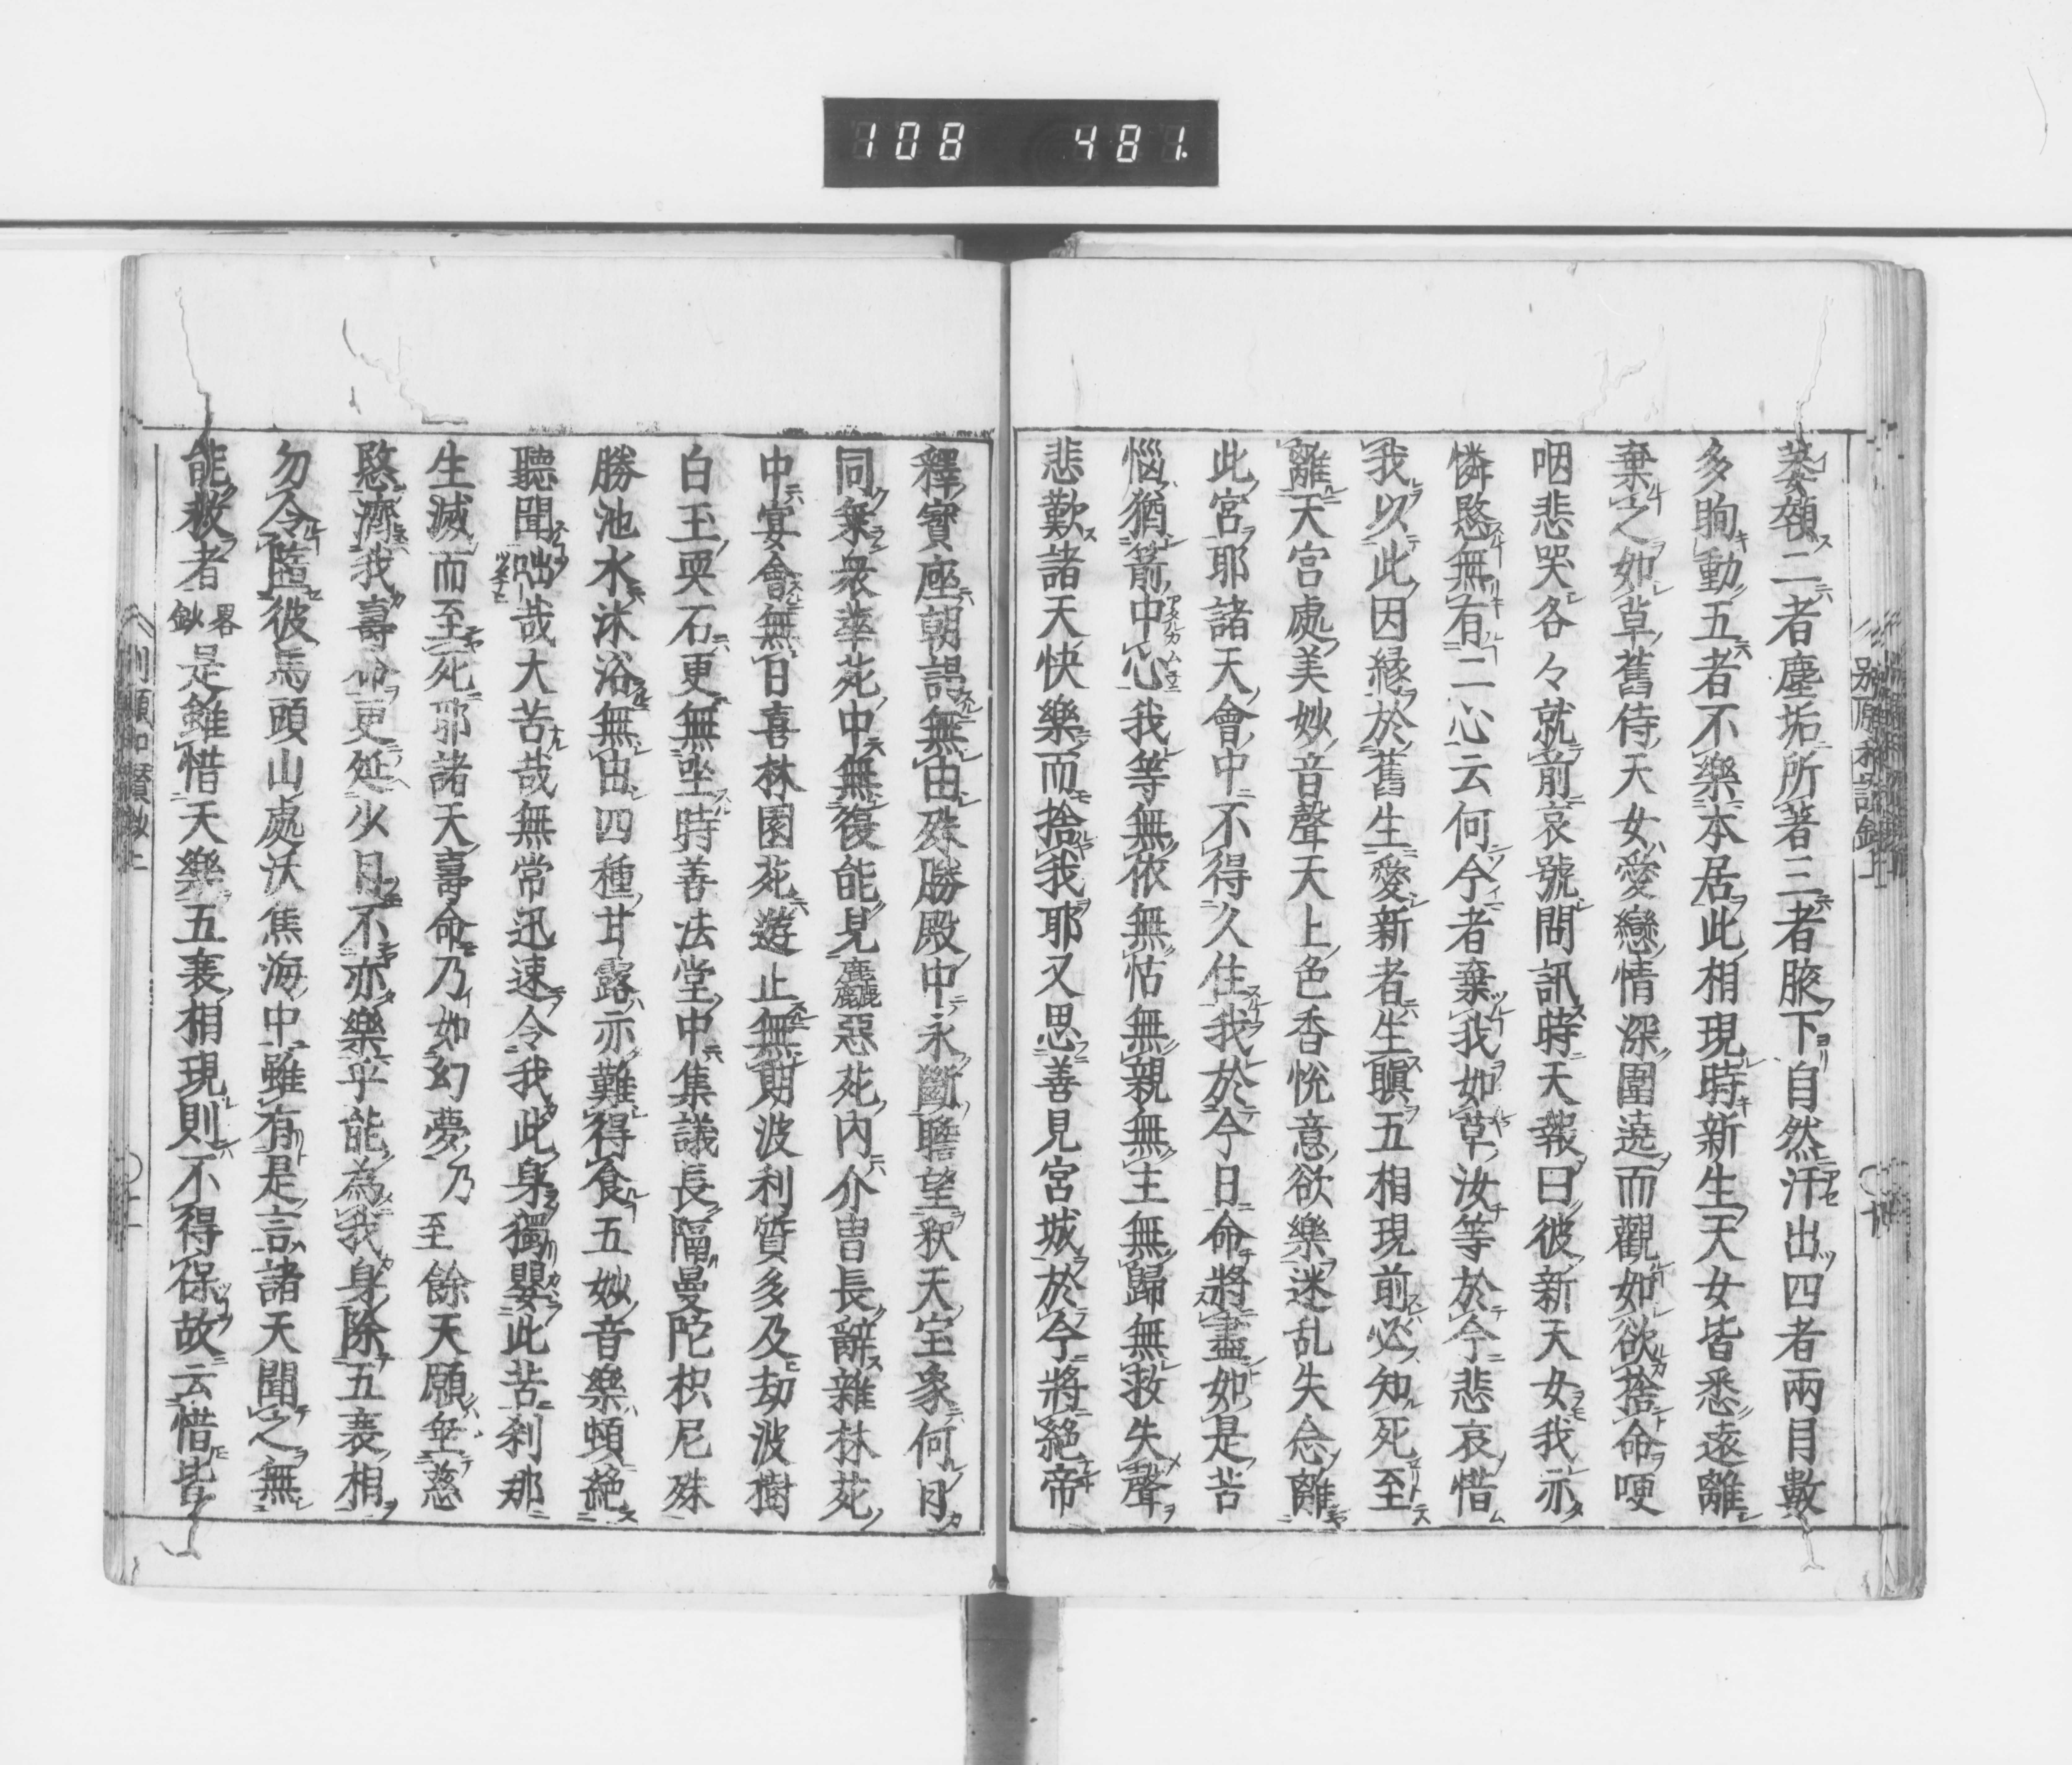 108 481.
萎顇二者塵垢所著三者腋下自然汗出四者兩目數
多眴動五者不樂本居此相現時新生天女皆悉遠離
棄之如草舊侍天女愛戀情深圍遶而觀如欲捨命哽
咽悲哭各々就前哀號問訊時天報曰彼新天女我亦
憐愍無有二心云何今者棄我如草汝等於今悲哀惜
我以此因縁於舊生愛新者生瞋五相現前必知死至
離天宮處美妙音聲天上色香悅意欲樂迷乱失念離
此宮耶諸天會中不得久住我於今日命將盡如是苦
惱猶箭中心我等無依無怙無親無主無歸無救失聲
悲歎諸天快樂而捨我耶又思善見宮城於今將絕帝
釋寶座朝謁無由殊勝殿中永斷瞻望釈天宝象何日
同乗衆華苑中無復能見麁惡苑内介冑長辭雜林苑
中宴會無日喜林園苑遊止無期波利質多及劫波樹
白玉耎石更無坐時善法堂中集議長隔曼陀枳尼殊
勝池水沐浴無由四種甘露亦難得食五妙音樂頓絕
聽聞咄哉大苦哉無常迅速令我此身獨嬰此苦刹那
生滅而至死耶諸天壽命乃如幻夢乃至餘天願垂慈
愍濟我壽命更延少日不亦樂乎能為我身除五衰相
勿令墮彼馬頭山處沃焦海中雖有是言諸天聞之無
能救者畧鈔是雖惜天樂五衰相現則不得保故云惜皆